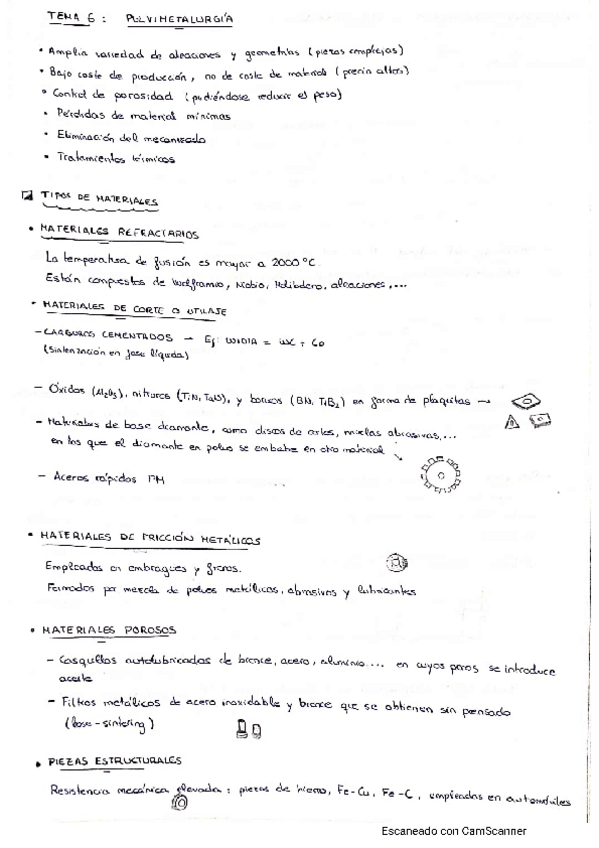 TEMA 6: PULVIMETALURGIA
• Amplia variedad de aleaciones y geometrías (piezas complejas)
• Bajo coste de producción, no de coste de material (precio altos)
• Control de porosidad (pudiéndose reducir el peso)
• Pérdidas de material mínimas
• Eliminación del mecanizado
• Tratamientos térmicos
TIPOS DE MATERIALES
• MATERIALES REFRACTARIOS
La temperatura de fusión es mayor a 2000°C.
Están compuestos de Wolframio, Niobio, Molibdeno, aleaciones,...
• MATERIALES DE CORTE O UTILAJE
- CARBUROS CEMENTADOS → Ej: WIDIA = WC + Co
(Sinterización en fase líquida)
- Óxidos (Al2O3), nitruros (TiN, TaN), y boruros (BN, TiB2) en forma de plaquitas →
- Materiales de base diamante, como discos de cortes, muelas abrasivas,...
en los que el diamante en polvo se embebe en otro material
- Aceros rápidos PM
• MATERIALES DE FRICCIÓN METÁLICOS
Empleados en embragues y frenos.
Formados por mezcla de polvos metálicos, abrasivos y lubricantes
• MATERIALES POROSOS
- Casquillos autolubricados de bronce, acero, aluminio.... en cuyos poros se introduce
aceite
- Filtros metálicos de acero inoxidable y bronce que se obtienen sin prensado
(loose-sintering)
• PIEZAS ESTRUCTURALES
Resistencia mecánica elevada: piezas de hierro, Fe-Cu, Fe-C, empleadas en automóviles
Escaneado con CamScanner